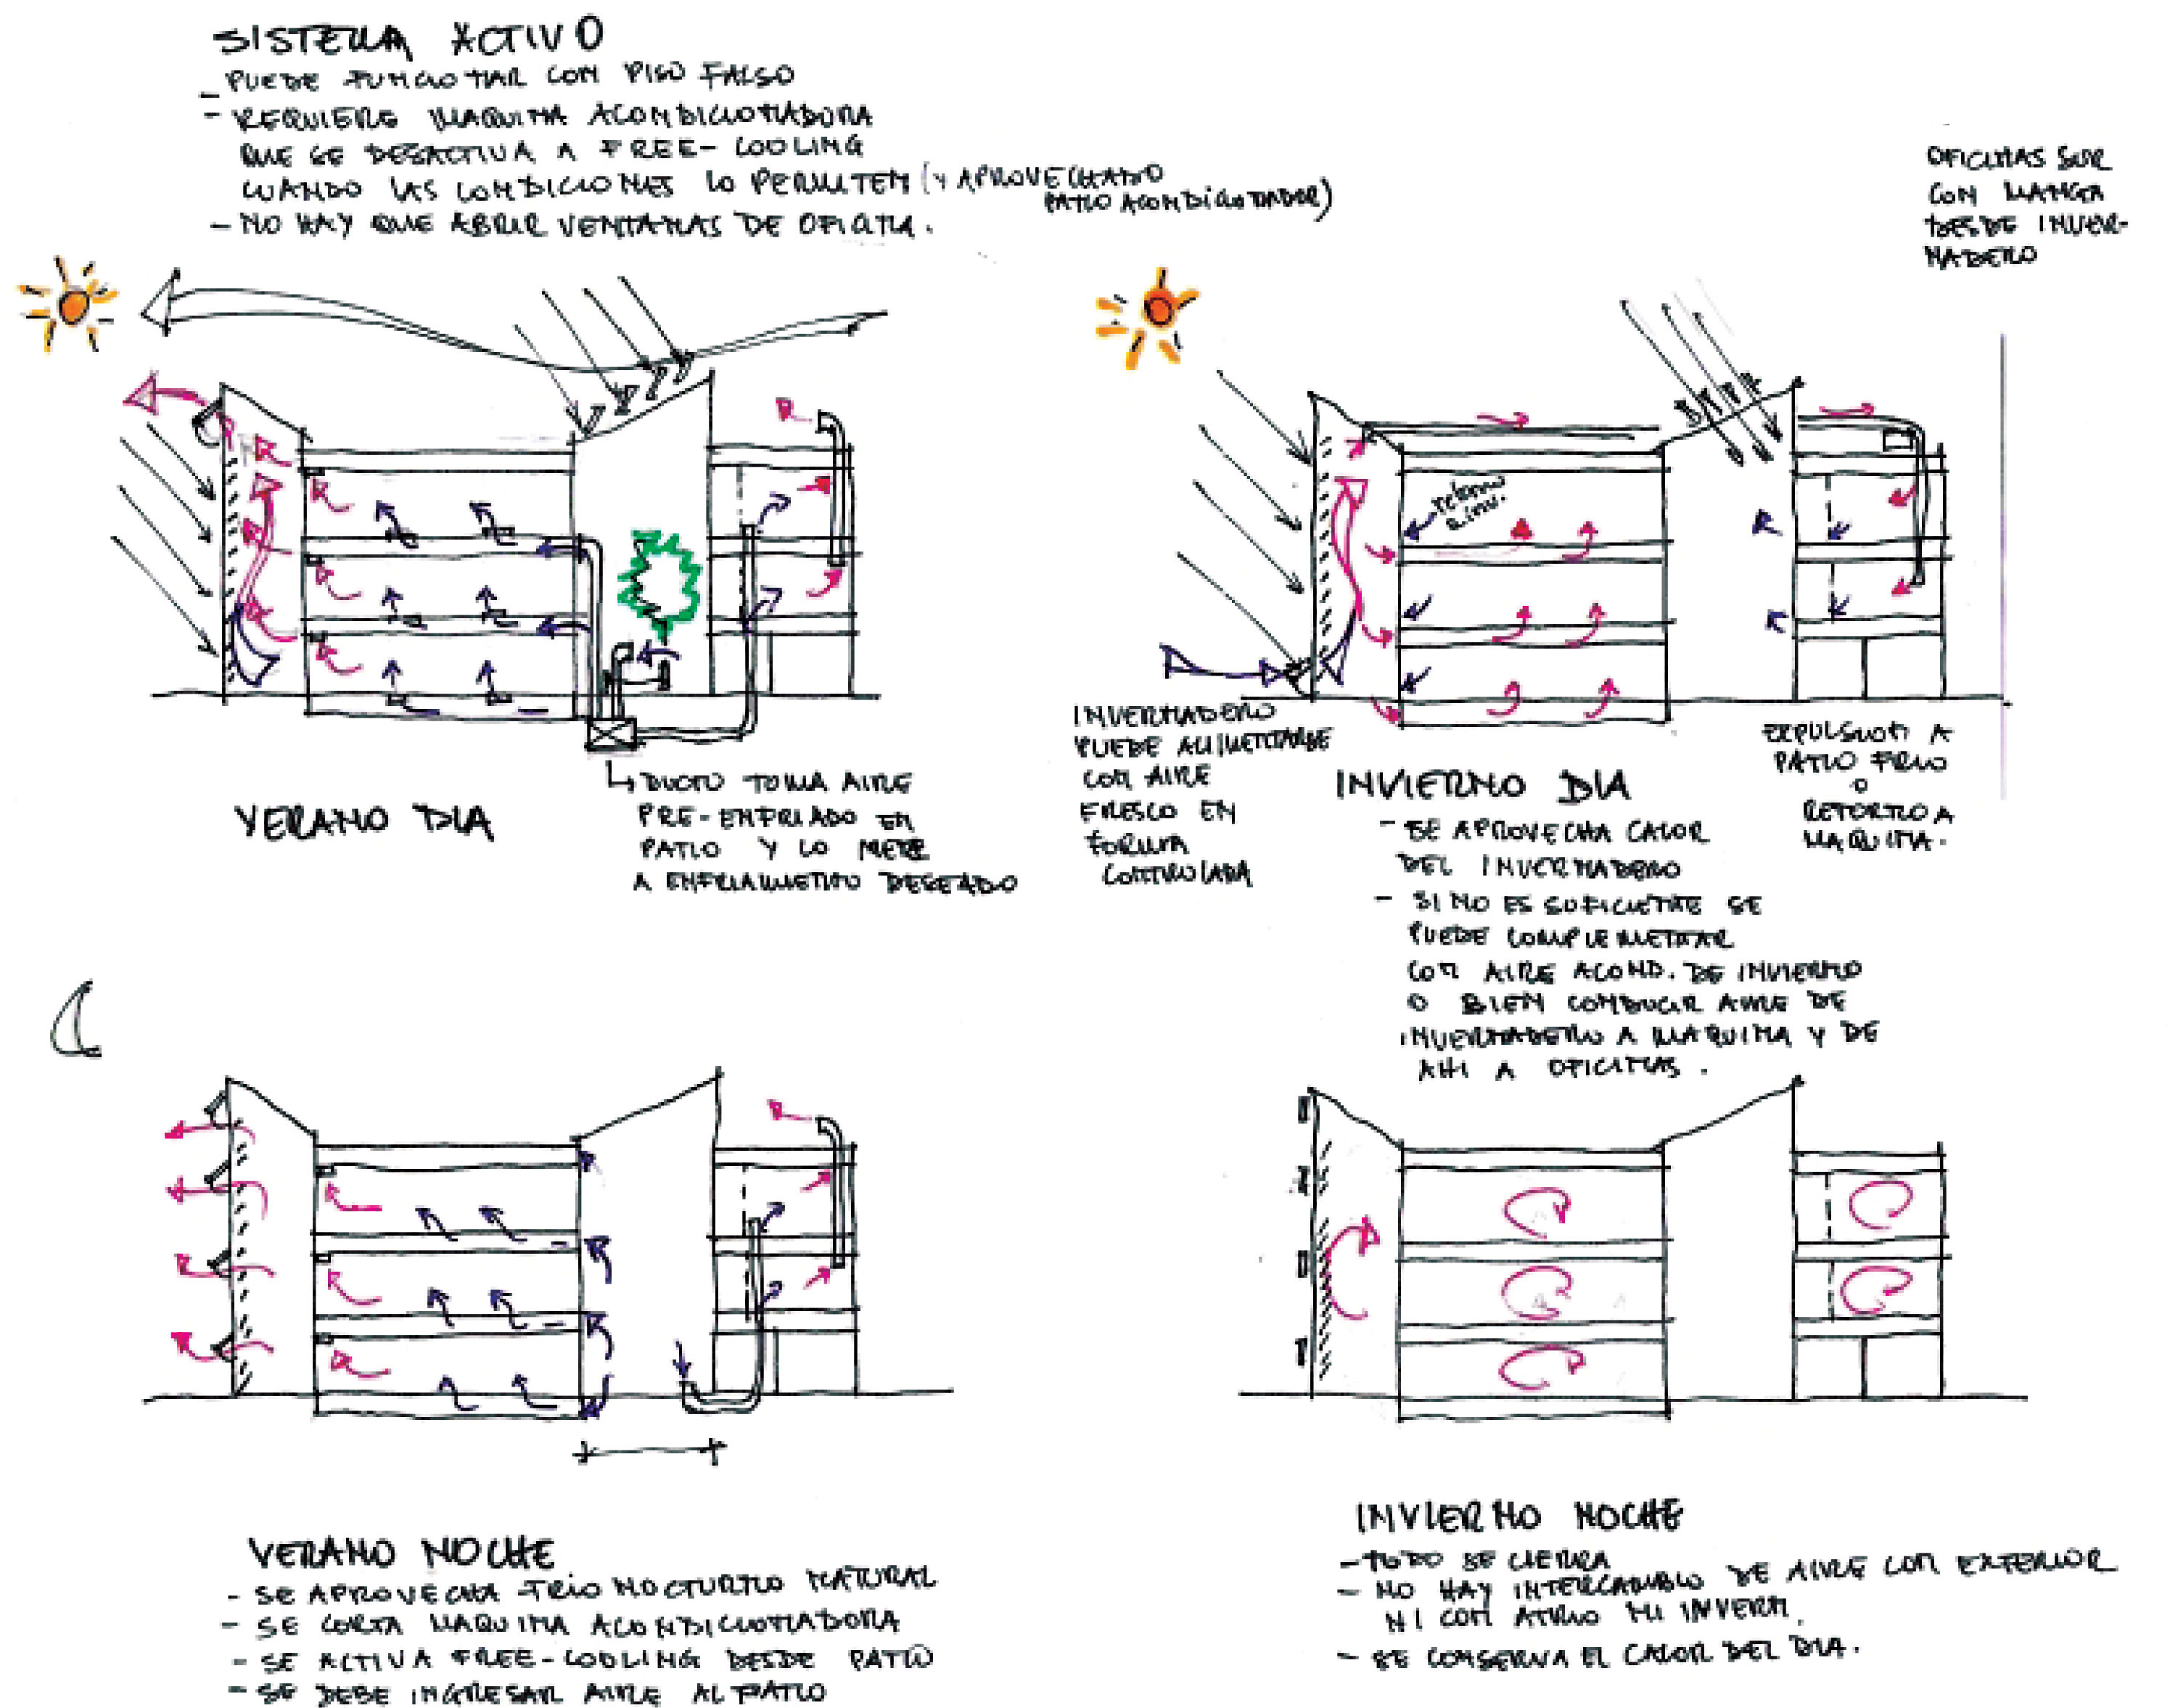 SISTEMA ACTIVO
- PUEDE FUNCIONAR CON PISO FALSO
- REQUIERE MAQUINA ACONDICIONADORA
QUE SE DESACTIVA A FREE-COOLING
CUANDO LAS CONDICIONES LO PERMITEN (Y APROVECHANDO
PATIO ACONDICIONADOR)
- NO HAY QUE ABRIR VENTANAS DE OFICINA.
OFICINAS SUR
CON MANGA
DESDE INVER-
NADERO
retorno
a inv.
VERANO DIA
DUCTO TOMA AIRE
PRE-ENFRIADO EN
PATIO Y LO METE
A ENFRIAMIENTO DESEADO
INVERNADERO
PUEDE ALIMENTARSE
CON AIRE
FRESCO EN
FORMA
CONTROLADA
INVIERNO DIA
- SE APROVECHA CALOR
DEL INVERNADERO
- SI NO ES SUFICIENTE SE
PUEDE COMPLEMENTAR
CON AIRE ACOND. DE INVIERNO
O BIEN CONDUCIR AIRE DE
INVERNADERO A MAQUINA Y DE
AHI A OFICINAS.
EXPULSION A
PATIO FRIO
O
RETORNO A
MAQUINA.
VERANO NOCHE
- SE APROVECHA FRIO NOCTURNO NATURAL
- SE CORTA MAQUINA ACONDICIONADORA
- SE ACTIVA FREE-COOLING DESDE PATIO
- SE DEBE INGRESAR AIRE AL PATIO
INVIERNO NOCHE
- TODO SE CIERRA
- NO HAY INTERCAMBIO DE AIRE CON EXTERIOR
NI CON ATRIO NI INVERN.
- SE CONSERVA EL CALOR DEL DIA.